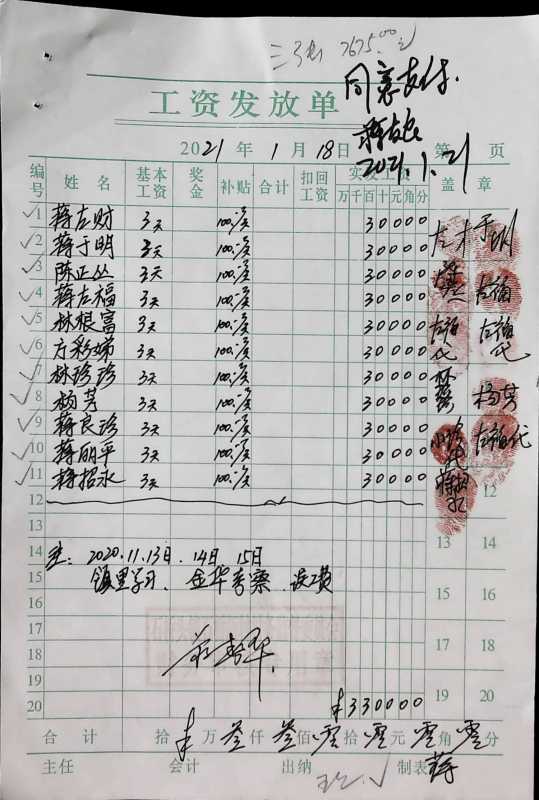 三张 7675.00元
同意支付.
工资发放单
2021.1.21
2021年 1月 18日 第 页
编号 姓名 基本工资 奖金 补贴 合计 扣回工资 实发 万千百十元角分 盖章
1 蒋左财 3天 100元/天 30000
2 蒋于明 3天 100元/天 30000
3 陈正丛 3天 100元/天 30000
4 蒋左福 3天 100元/天 30000
5 林根富 3天 100元/天 30000
6 方彩娣 3天 100元/天 30000
7 林珍珍 3天 100元/天 30000
8 杨芳 3天 100元/天 30000 杨芳
9 蒋良珍 3天 100元/天 30000 左福代
10 蒋丽平 3天 100元/天 30000
11 蒋招永 3天 100元/天 30000
12 12
13 13 14
14 注: 2020.11.13日. 14日 15日
15 镇里学习、金华考察、误工费 15 16
16
17 17 18
18
19 ¥330000 19 20
20
合计 拾 ¥ 万 叁 仟 叁 佰 零 拾 零 元 零 角 零 分
主任 会计 出纳 制表 蒋